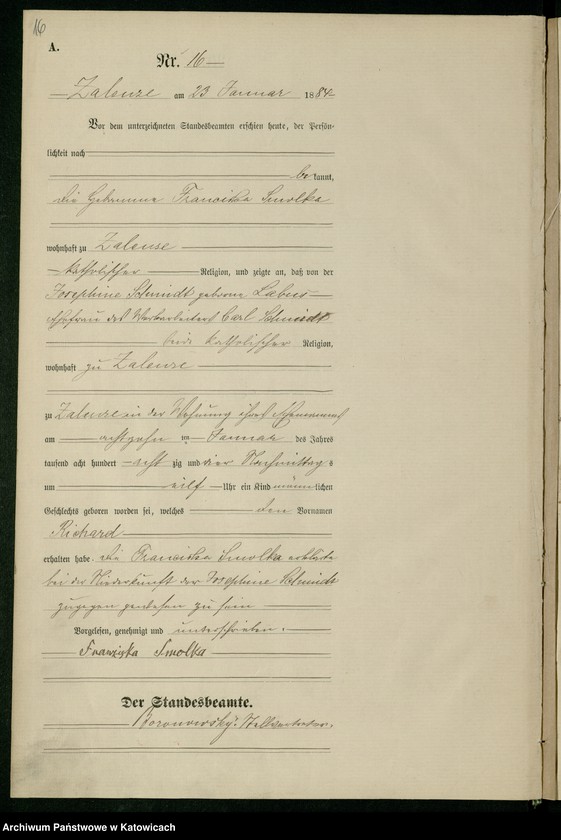 16
A.
Nr. 16
Zalenze am 23 Januar 1884
Vor dem unterzeichneten Standesbeamten erschien heute, der Persön-
lichkeit nach
bekannt,
die Hebamme Franciska Smolka
wohnhaft zu Zalenze
katholischer Religion, und zeigte an, daß von der
Josephine Schmidt geborene Labus
Ehefrau des Carl Schmidt
beide katholischer Religion,
wohnhaft zu Zalenze
zu Zalenze in der Wohnung ihres Ehemannes
am achtzehn ten Januar des Jahres
tausend acht hundert acht zig und vier Nachmittags
um eilf Uhr ein Kind männlichen
Geschlechts geboren worden sei, welches den Vornamen
Richard
erhalten habe. Die Franciska Smolka erklärte
bei der Niederkunft der Josephine Schmidt
zugegen gewesen zu sein
Vorgelesen, genehmigt und unterschrieben.
Franziska Smolka
Der Standesbeamte.
Boronowsky. Stellvertreter.
Archiwum Państwowe w Katowicach